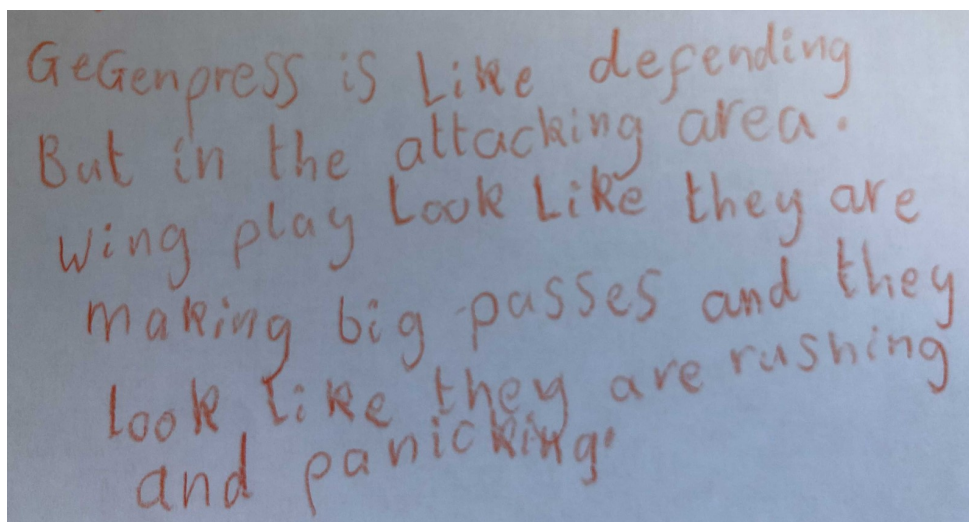 GeGenpress is Like defending
But in the attacking area.
wing play Look Like they are
making big passes and they
look like they are rushing
and panicking.